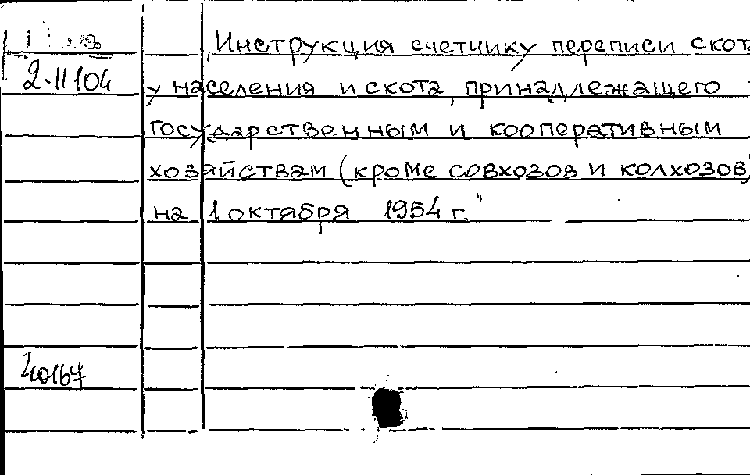 Инструкция счетчику переписи скот
2-11104
у населения и скота, принадлежащего
государственным и кооперативным
хозяйствам (кроме совхозов и колхозов)
на 1 октября 1954 г."